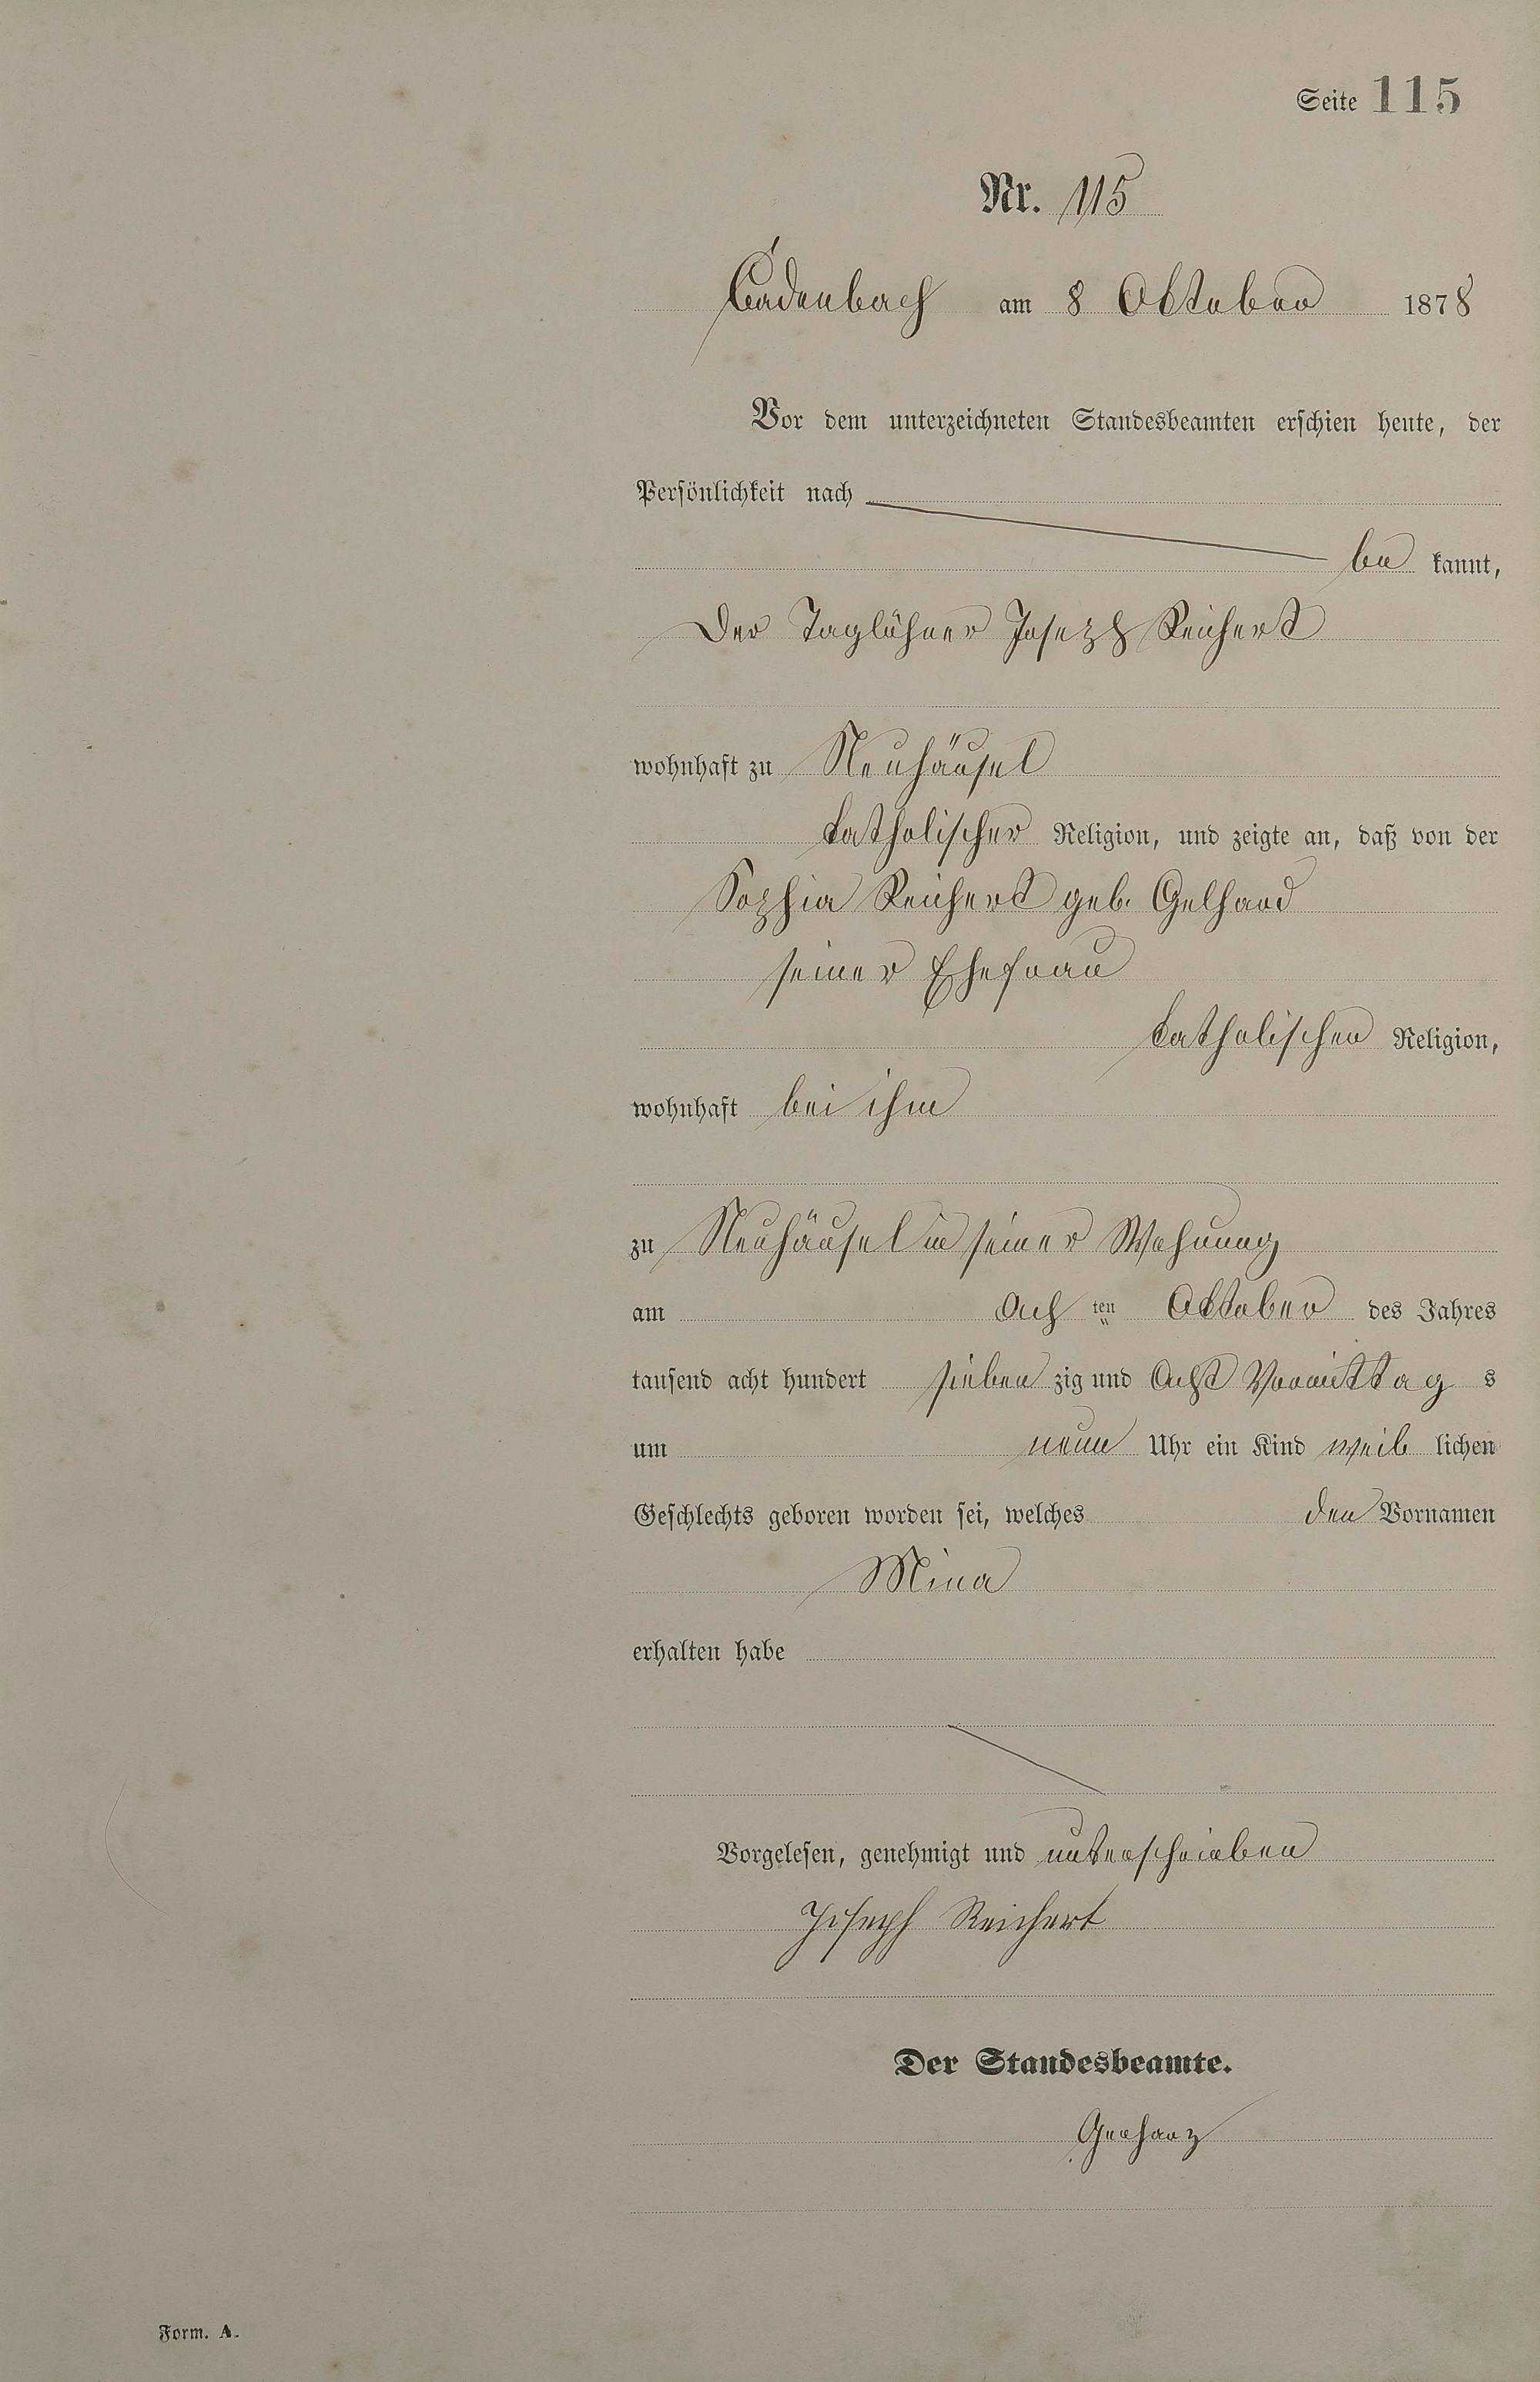 Seite 115
Nr. 115
Cadenbach am 8 Oktober 1878
Vor dem unterzeichneten Standesbeamten erschien heute, der
Persönlichkeit nach
be kannt,
Der Taglöhner Joseph Reichert
wohnhaft zu Neuhäusel
katholischer Religion, und zeigte an, daß von der
Sophia Reichert geb. Gelhard
seiner Ehefrau
katholischer Religion,
wohnhaft bei ihm
zu Neuhäusel in seiner Wohnung
am Ach ten Oktober des Jahres
tausend acht hundert sieben zig und Acht Vormittag s
um neun Uhr ein Kind weib lichen
Geschlechts geboren worden sei, welches den Vornamen
Mina
erhalten habe
Vorgelesen, genehmigt und unterschrieben
Joseph Reichert
Der Standesbeamte.
Gerharz
Form. A.